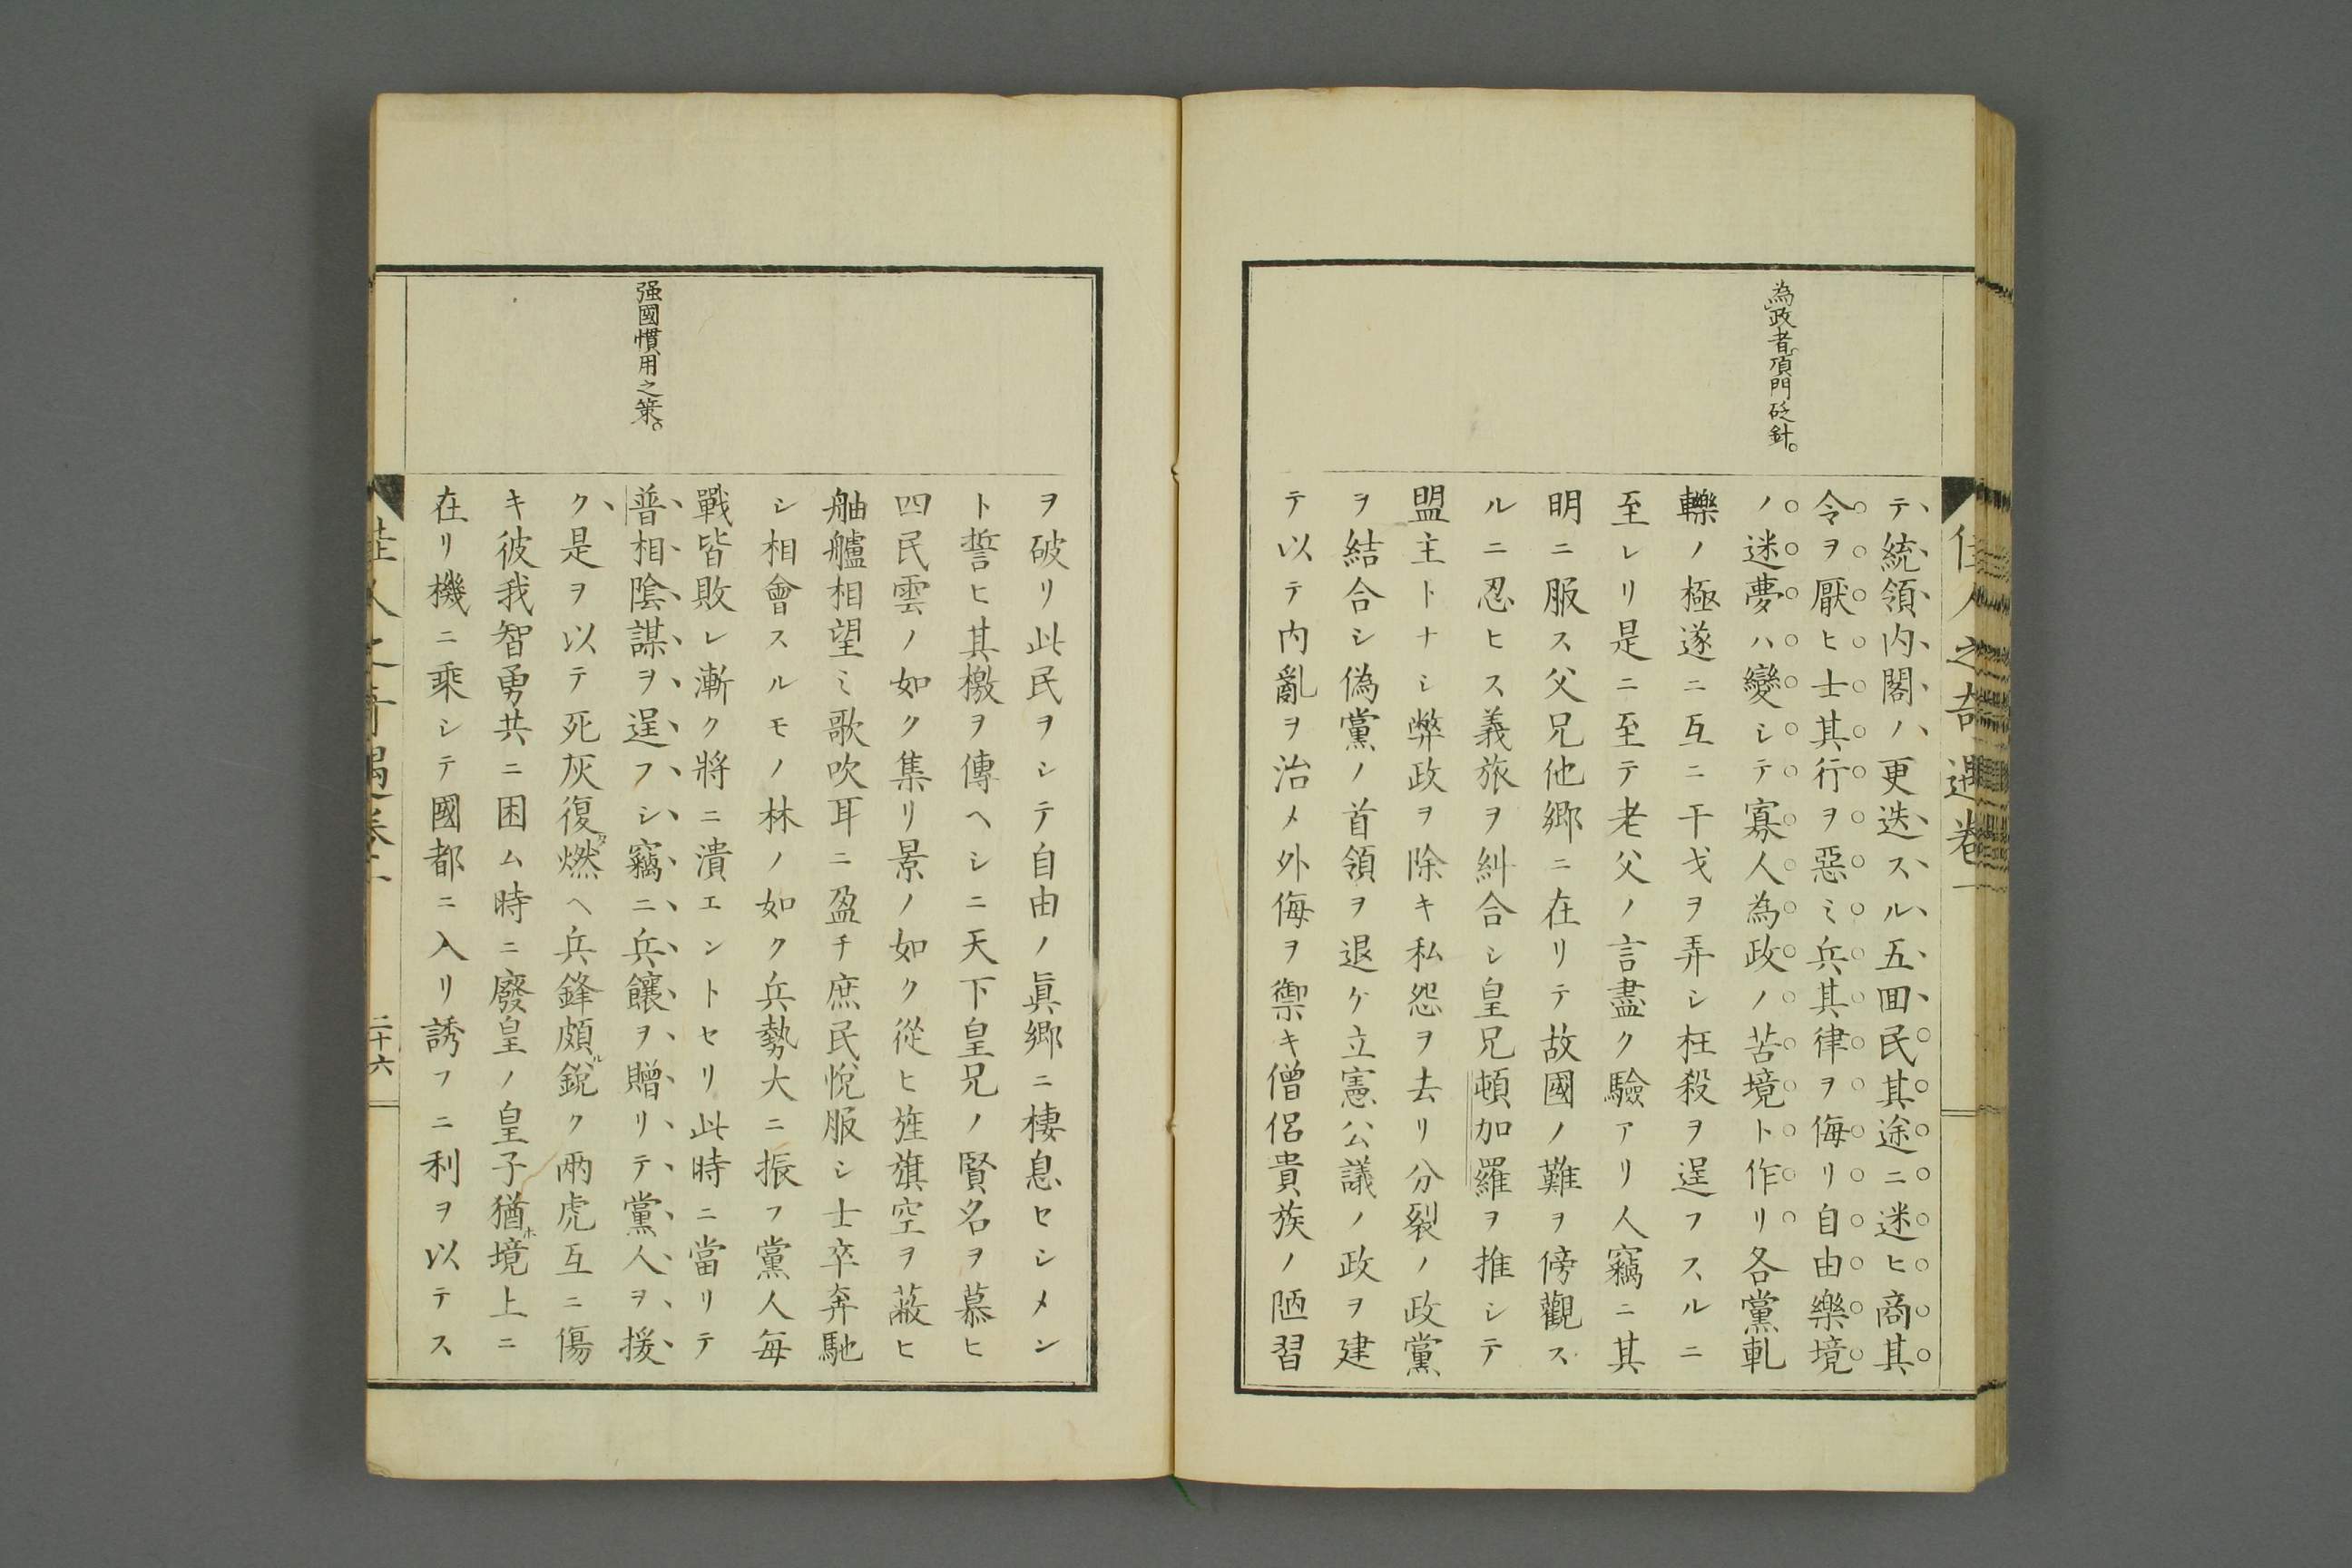 佳人之奇遇卷一
為政者頂門砭針。
テ統領内閣ノ更迭スル五回民其途ニ迷ヒ商其
令ヲ厭ヒ士其行ヲ惡ミ兵其律ヲ侮リ自由樂境
ノ迷夢ハ變シテ寡人為政ノ苦境ト作リ各黨軋
轢ノ極遂ニ互ニ干戈ヲ弄シ枉殺ヲ逞フスルニ
至レリ是ニ至テ老父ノ言盡ク驗アリ人竊ニ其
明ニ服ス父兄他鄉ニ在リテ故國ノ難ヲ傍觀ス
ルニ忍ヒス義旅ヲ糾合シ皇兄頓加羅ヲ推シテ
盟主トナシ弊政ヲ除キ私怨ヲ去リ分裂ノ政黨
ヲ結合シ偽黨ノ首領ヲ退ケ立憲公議ノ政ヲ建
テ以テ内亂ヲ治メ外侮ヲ禦キ僧侶貴族ノ陋習
强國慣用之策。
ヲ破リ此民ヲシテ自由ノ眞鄉ニ棲息セシメン
ト誓ヒ其檄ヲ傳ヘシニ天下皇兄ノ賢名ヲ慕ヒ
四民雲ノ如ク集リ景ノ如ク從ヒ旌旗空ヲ蔽ヒ
舳艫相望ミ歌吹耳ニ盈チ庶民悅服シ士卒奔馳
シ相會スルモノ林ノ如ク兵勢大ニ振フ黨人每
戰皆敗レ漸ク將ニ潰エントセリ此時ニ當リテ
普相陰謀ヲ逞フシ竊ニ兵饟ヲ贈リテ黨人ヲ援
ク是ヲ以テ死灰復タ燃ヘ兵鋒頗ル銳ク兩虎互ニ傷
キ彼我智勇共ニ困ム時ニ廢皇ノ皇子猶ホ境上ニ
在リ機ニ乘シテ國都ニ入リ誘フニ利ヲ以テス
二十六